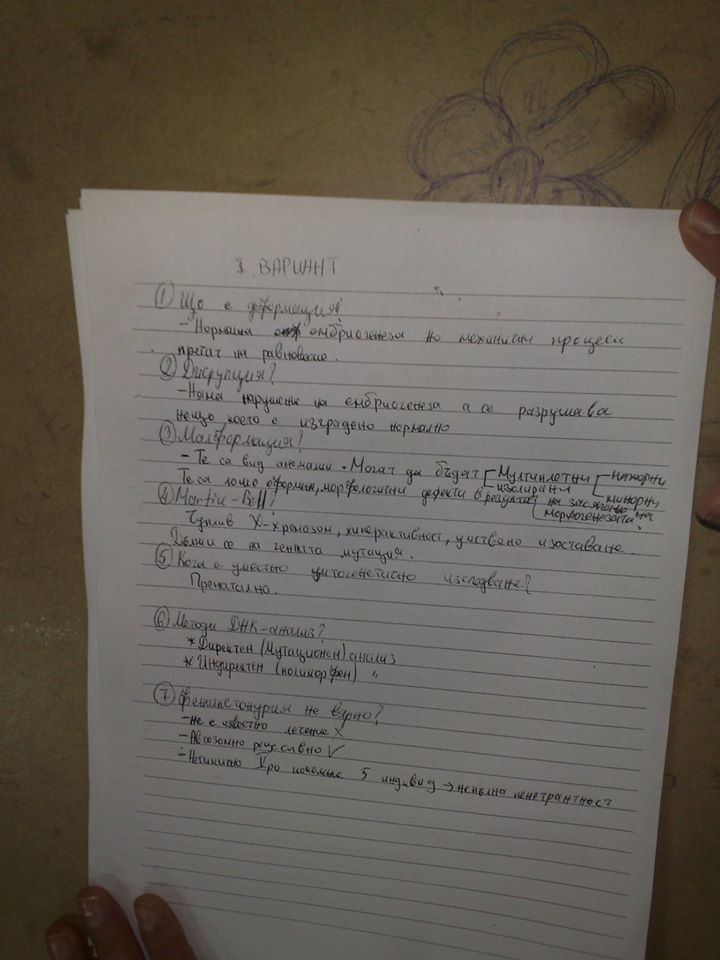 I. ВАРИАНТ
① Що е деформация?
- Нормална ембриогенеза но механични процеси
пречат на
② Дисрупция?
- Няма нарушение на ембриогенеза а се разрушава
нещо което е изградено нормално
③ Малформация?
- Те са вид аномалии. Могат да бъдат Мултиплетни мажорни
изолирани минорни
Те са лошо оформени, морфологични дефекти в резултат на засягане
морфогенезата
④ Martin-Bell?
Чуплив X-хромозом, хиперактивност, умствено изоставане.
Дължи се на генната мутация.
⑤ Кога е уместно цитогенетично изследване?
Пренатално.
⑥ Методи ДНК-анализ?
* Директен (Мутационен) анализ
* Индиректен (полиморфен) "
⑦ Фенилкетонурия не вярно?
- Не е известно лечение X
- Автозомно рецесивно ✓
- 5 индивид → непълна пенетрантност